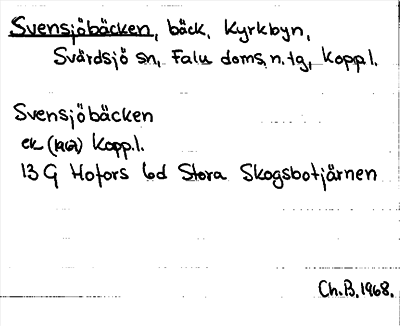 Svensjöbäcken, bäck, Kyrkbyn,
Svärdsjö sn, Falu doms.n.tg, Kopp.l.
Svensjöbäcken
ek (1967) Kopp.l.
13 G Hofors 6d Stora Skogsbotjärnen
Ch.B.1968.